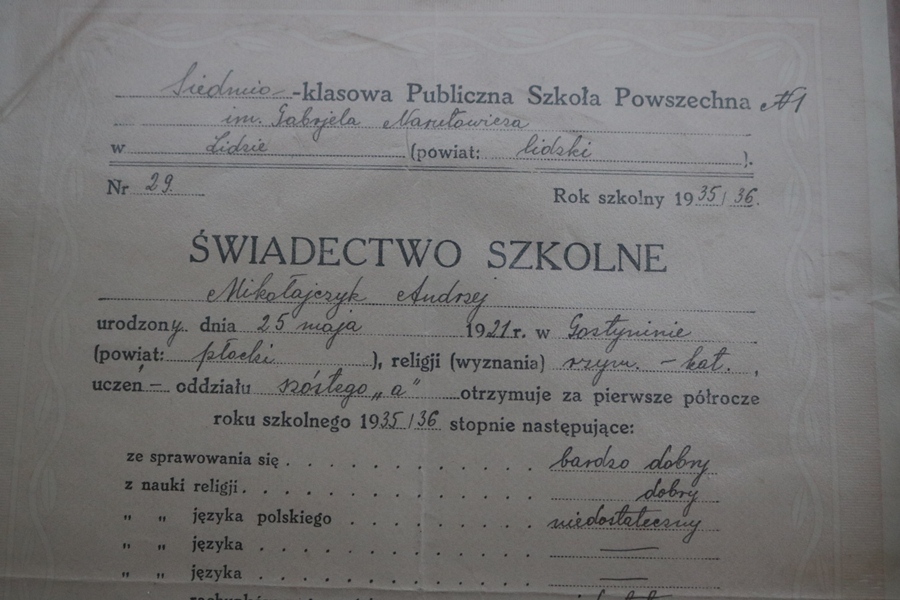 Siedmio-klasowa Publiczna Szkoła Powszechna №1
im. Gabrjela Narutowicza
w Lidzie (powiat: lidzki ).
Nr 29. Rok szkolny 1935/36.
ŚWIADECTWO SZKOLNE
Mikołajczyk Andrzej
urodzony dnia 25 maja 1921 r. w Gostyninie
(powiat: płocki ), religji (wyznania) rzym.-kat.,
uczeń — oddziału szóstego „a" otrzymuje za pierwsze półrocze
roku szkolnego 1935/36 stopnie następujące:
ze sprawowania się . . . . . . . . . . bardzo dobry
z nauki religji . . . . . . . . . . . dobry
" " języka polskiego . . . . . . . niedostateczny
" " języka . . . . . . . . . . . —
" " języka . . . . . . . . . . . —